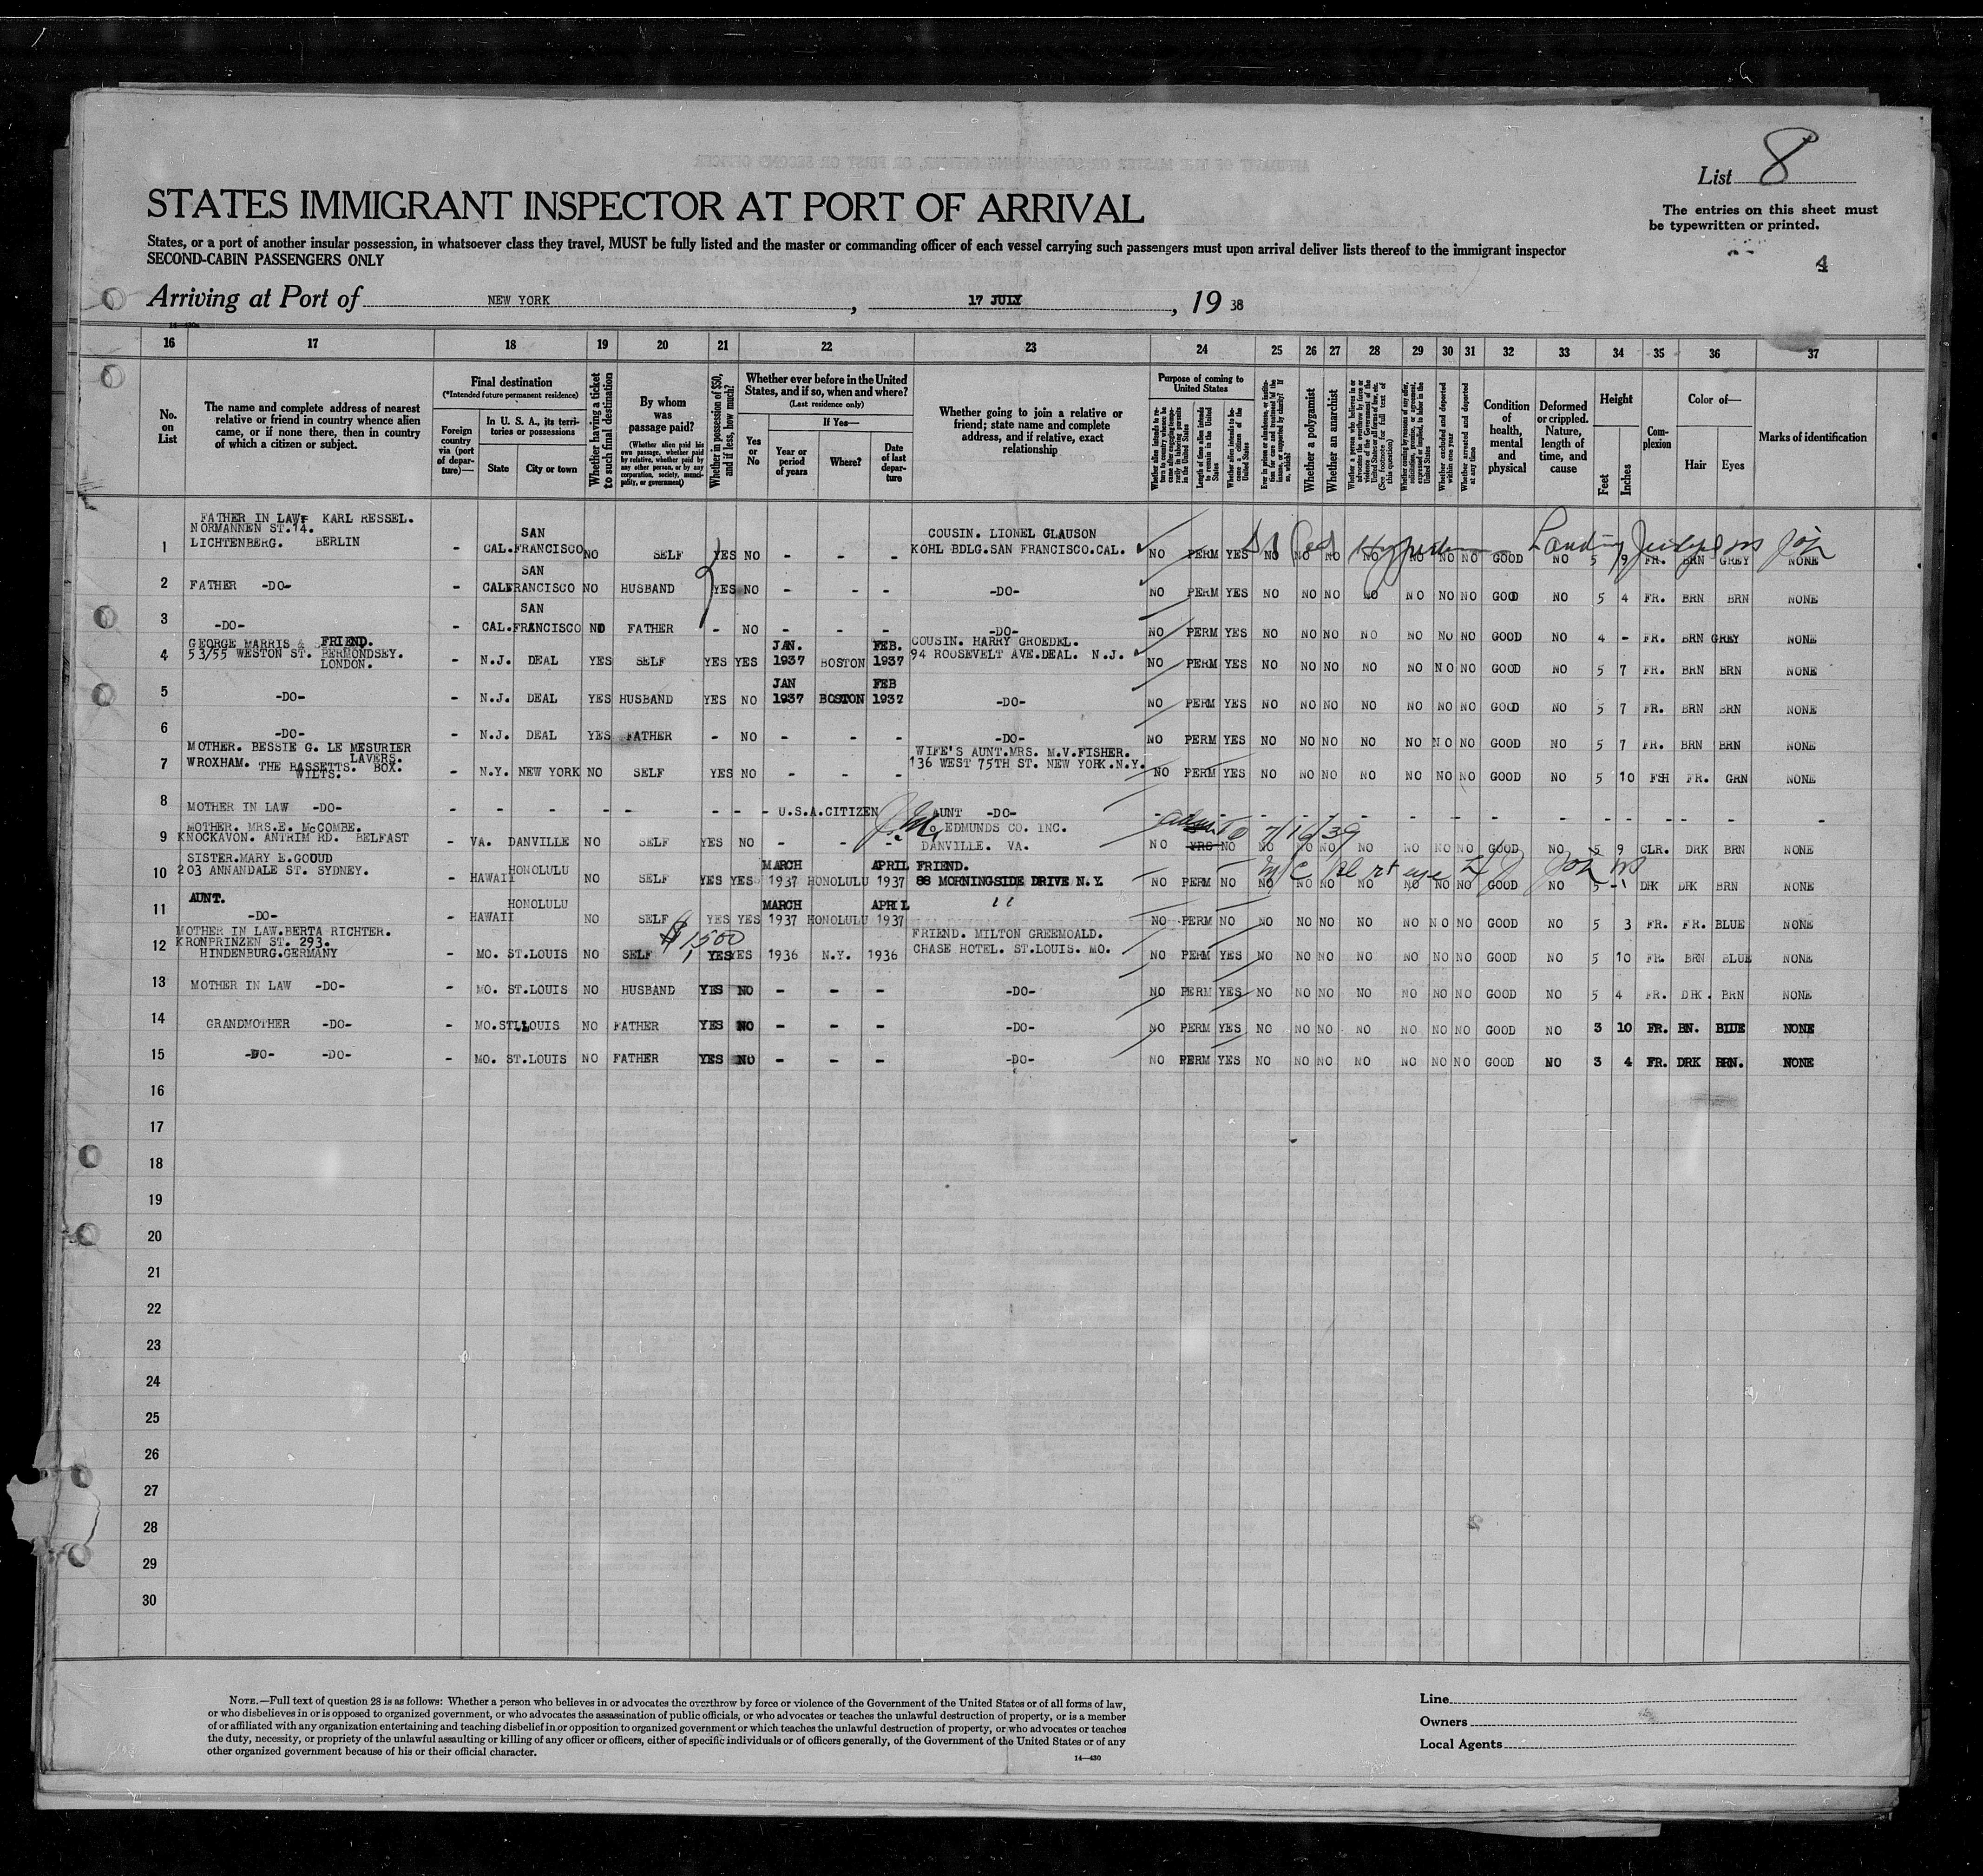 List 8
STATES IMMIGRANT INSPECTOR AT PORT OF ARRIVAL
The entries on this sheet must
be typewritten or printed.
States, or a port of another insular possession, in whatsoever class they travel, MUST be fully listed and the master or commanding officer of each vessel carrying such passengers must upon arrival deliver lists thereof to the immigrant inspector
SECOND-CABIN PASSENGERS ONLY
4
Arriving at Port of NEW YORK, 17 JULY, 19 38
14-430a
16 17 18 19 20 21 22 23 24 25 26 27 28 29 30 31 32 33 34 35 36 37
No. on List
The name and complete address of nearest relative or friend in country whence alien came, or if none there, then in country of which a citizen or subject.
Final destination
(*Intended future permanent residence)
Foreign country via (port of departure)—
In U. S. A., its territories or possessions
State
City or town
Whether having a ticket to such final destination
By whom was passage paid?
(Whether alien paid his own passage, whether paid by relative, whether paid by any other person, or by any corporation, society, municipality, or government)
Whether in possession of $50, and if less, how much?
Whether ever before in the United States, and if so, when and where?
(Last residence only)
Yes or No
If Yes—
Year or period of years
Where?
Date of last departure
Whether going to join a relative or friend; state name and complete address, and if relative, exact relationship
Purpose of coming to United States
Length of time alien intends to remain in the United States
Whether alien intends to become a citizen of the United States
Whether a polygamist
Whether an anarchist
(See footnote for full text of this question)
Whether excluded and deported within one year
Whether arrested and deported at any time
Condition of health, mental and physical
Deformed or crippled. Nature, length of time, and cause
Height
Feet
Inches
Complexion
Color of—
Hair
Eyes
Marks of identification
1 FATHER IN LAW KARL RESSEL. NORMANNEN ST.14. LICHTENBERG. BERLIN - CAL. SAN FRANCISCO NO SELF YES NO - - - COUSIN. LIONEL GLAUSON KOHL BDLG.SAN FRANCISCO.CAL. NO PERM YES NO NO NO NO NO NO NO GOOD NO 5 9 FR. BRN GREY NONE
2 FATHER -DO- - CAL SAN FRANCISCO NO HUSBAND YES NO - - - -DO- NO PERM YES NO NO NO NO NO NO NO GOOD NO 5 4 FR. BRN BRN NONE
3 -DO- - CAL. SAN FRANCISCO NO FATHER - NO - - - -DO- NO PERM YES NO NO NO NO NO NO NO GOOD NO 4 - FR. BRN GREY NONE
4 GEORGE MARRIS & FRIEND. 53/55 WESTON ST. BERMONDSEY. LONDON. - N.J. DEAL YES SELF YES YES JAN. 1937 BOSTON FEB. 1937 COUSIN. HARRY GROEDEL. 94 ROOSEVELT AVE.DEAL. N.J. NO PERM YES NO NO NO NO NO NO NO GOOD NO 5 7 FR. BRN BRN NONE
5 -DO- - N.J. DEAL YES HUSBAND YES NO JAN 1937 BOSTON FEB 1937 -DO- NO PERM YES NO NO NO NO NO NO NO GOOD NO 5 7 FR. BRN BRN NONE
6 -DO- - N.J. DEAL YES FATHER - NO - - - -DO- NO PERM YES NO NO NO NO NO NO NO GOOD NO 5 7 FR. BRN BRN NONE
7 MOTHER. BESSIE G. LE MESURIER LAVERS. WROXHAM. THE BASSETTS. BOX. WILTS. - N.Y. NEW YORK NO SELF YES NO - - - WIFE'S AUNT.MRS. M.V.FISHER. 136 WEST 75TH ST. NEW YORK.N.Y. NO PERM YES NO NO NO NO NO NO NO GOOD NO 5 10 FSH FR. GRN NONE
8 MOTHER IN LAW -DO- - - - - - - - - U.S.A.CITIZEN AUNT -DO- - - - - - - - - - - - - - - - - -
9 MOTHER. MRS.E. McCOMBE. KNOCKAVON. ANTRIM RD. BELFAST - VA. DANVILLE NO SELF YES NO - - - EDMUNDS CO. INC. DANVILLE. VA. NO YRS NO NO NO NO NO NO NO NO GOOD NO 5 9 CLR. DRK BRN NONE
10 SISTER.MARY E.GOUUD 203 ANNANDALE ST. SYDNEY. - HAWAII HONOLULU NO SELF YES YES MARCH 1937 HONOLULU APRIL 1937 FRIEND. 88 MORNINGSIDE DRIVE N.Y. NO PERM NO NO NO NO NO NO NO NO GOOD NO 5 -1 DRK DRK BRN NONE
11 AUNT. -DO- - HAWAII HONOLULU NO SELF YES YES MARCH 1937 HONOLULU APRIL 1937 '' NO PERM NO NO NO NO NO NO NO NO GOOD NO 5 3 FR. FR. BLUE NONE
12 MOTHER IN LAW.BERTA RICHTER. KRONPRINZEN ST. 293. HINDENBURG.GERMANY - MO. ST.LOUIS NO SELF $1500 YES YES 1936 N.Y. 1936 FRIEND. MILTON GREEMOALD. CHASE HOTEL. ST.LOUIS. MO. NO PERM YES NO NO NO NO NO NO NO GOOD NO 5 10 FR. BRN BLUE NONE
13 MOTHER IN LAW -DO- - MO. ST.LOUIS NO HUSBAND YES NO - - - -DO- NO PERM YES NO NO NO NO NO NO NO GOOD NO 5 4 FR. DRK. BRN NONE
14 GRANDMOTHER -DO- - MO. ST.LOUIS NO FATHER YES NO - - - -DO- NO PERM YES NO NO NO NO NO NO NO GOOD NO 3 10 FR. BN. BLUE NONE
15 -DO- -DO- - MO. ST.LOUIS NO FATHER YES NO - - - -DO- NO PERM YES NO NO NO NO NO NO NO GOOD NO 3 4 FR. DRK BRN. NONE
16
17
18
19
20
21
22
23
24
25
26
27
28
29
30
NOTE.—Full text of question 28 is as follows: Whether a person who believes in or advocates the overthrow by force or violence of the Government of the United States or of all forms of law,
or who disbelieves in or is opposed to organized government, or who advocates the assassination of public officials, or who advocates or teaches the unlawful destruction of property, or is a member
of or affiliated with any organization entertaining and teaching disbelief in or opposition to organized government or which teaches the unlawful destruction of property, or who advocates or teaches
the duty, necessity, or propriety of the unlawful assaulting or killing of any officer or officers, either of specific individuals or of officers generally, of the Government of the United States or of any
other organized government because of his or their official character.
14-430
Line
Owners
Local Agents